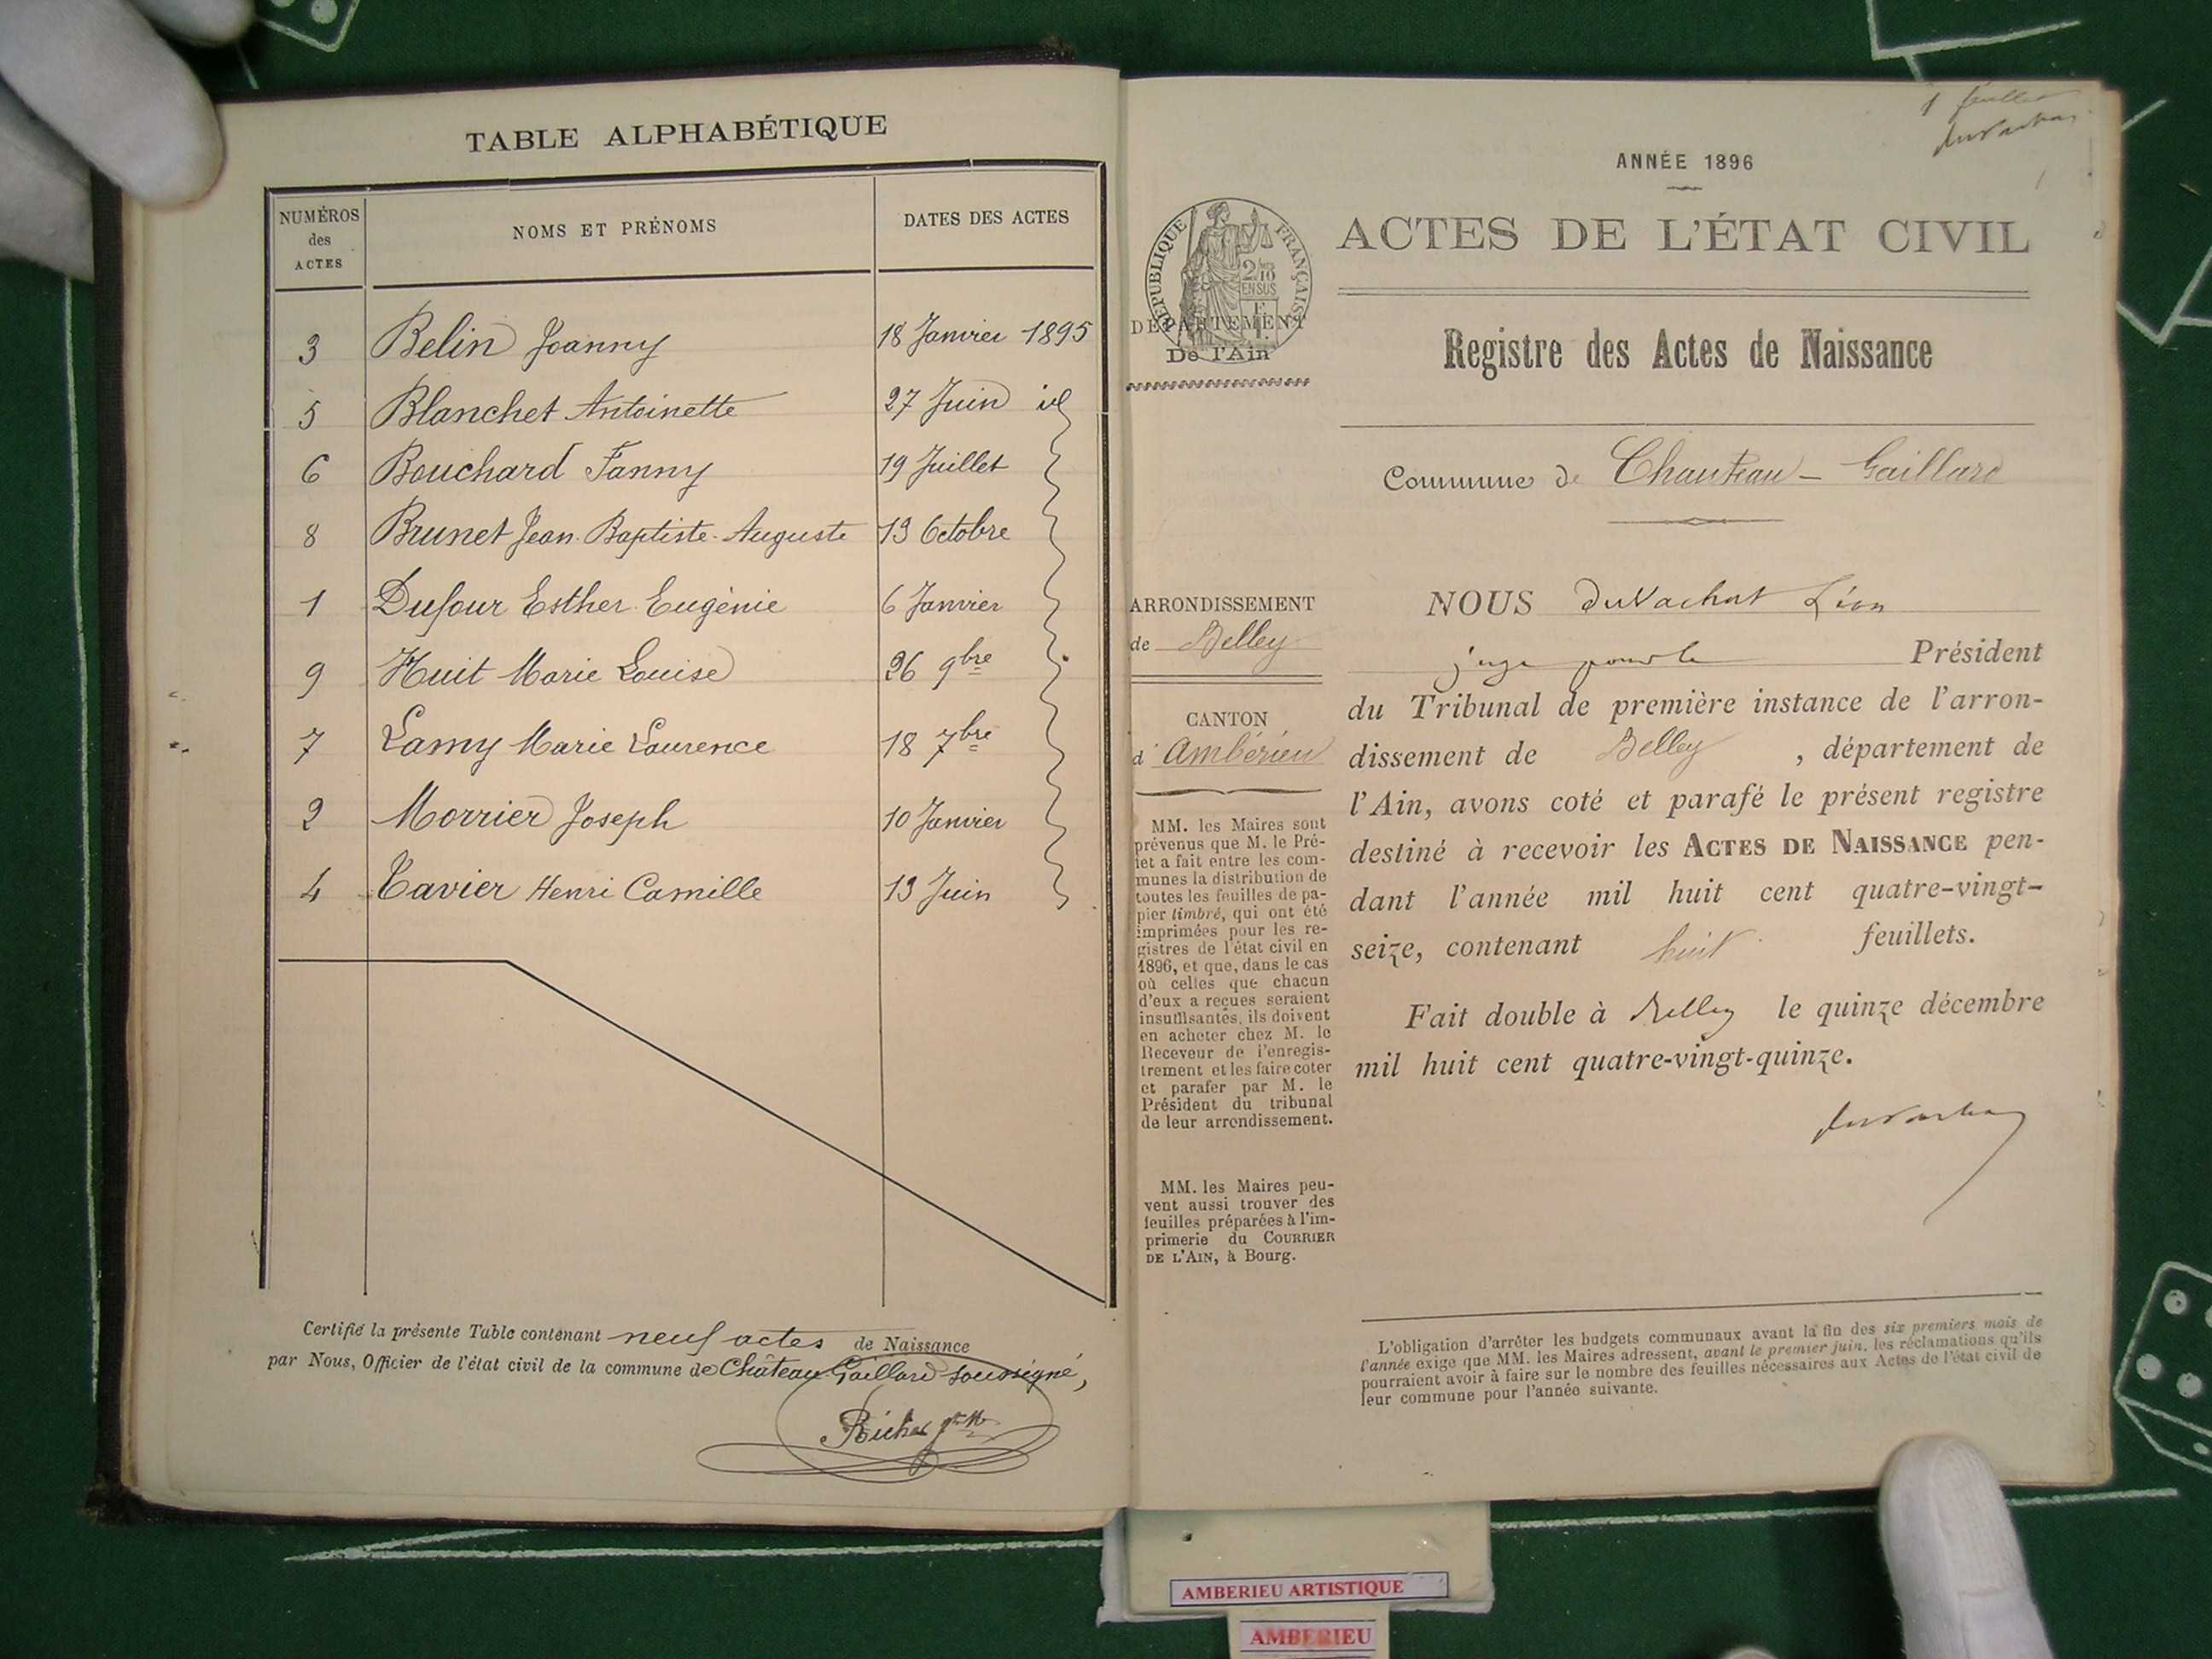 TABLE ALPHABÉTIQUE
NUMÉROS
des
ACTES
NOMS ET PRÉNOMS
DATES DES ACTES
3 Belin Joanny 18 Janvier 1895
5 Blanchet Antoinette 27 Juin id
6 Bouchard Fanny 19 Juillet
8 Brunet Jean-Baptiste-Auguste 13 Octobre
1 Dufour Esther Eugénie 6 Janvier
9 Huit Marie Louise 26 9bre
7 Lamy Marie Laurence 18 7bre
2 Morrier Joseph 10 Janvier
4 Tavier Henri Camille 13 Juin
Certifié la présente Table contenant neuf actes de Naissance
par Nous, Officier de l'état civil de la commune de Château-Gaillard soussigné,
1 feuillet
ANNÉE 1896
ACTES DE L'ÉTAT CIVIL
RÉPUBLIQUE FRANÇAISE
DÉPARTEMENT
De l'Ain
Registre des Actes de Naissance
Commune de Chauteau-Gaillard
ARRONDISSEMENT
de Belley
CANTON
d'Ambérieu
MM. les Maires sont
prévenus que M. le Pré-
fet a fait entre les com-
munes la distribution de
toutes les feuilles de pa-
pier timbré, qui ont été
imprimées pour les re-
gistres de l'état civil en
1896, et que, dans le cas
où celles que chacun
d'eux a reçues seraient
insuffisantes, ils doivent
en acheter chez M. le
Receveur de l'enregis-
trement et les faire coter
et parafer par M. le
Président du tribunal
de leur arrondissement.
MM. les Maires peu-
vent aussi trouver des
feuilles préparées à l'im-
primerie du COURRIER
DE L'AIN, à Bourg.
NOUS Duvachat Léon
juge pour le Président
du Tribunal de première instance de l'arron-
dissement de Belley, département de
l'Ain, avons coté et parafé le présent registre
destiné à recevoir les ACTES DE NAISSANCE pen-
dant l'année mil huit cent quatre-vingt-
seize, contenant huit feuillets.
Fait double à Belley le quinze décembre
mil huit cent quatre-vingt-quinze.
L'obligation d'arrêter les budgets communaux avant la fin des six premiers mois de
l'année exige que MM. les Maires adressent, avant le premier juin, les réclamations qu'ils
pourraient avoir à faire sur le nombre des feuilles nécessaires aux Actes de l'état civil de
leur commune pour l'année suivante.
AMBERIEU ARTISTIQUE
AMBERIEU